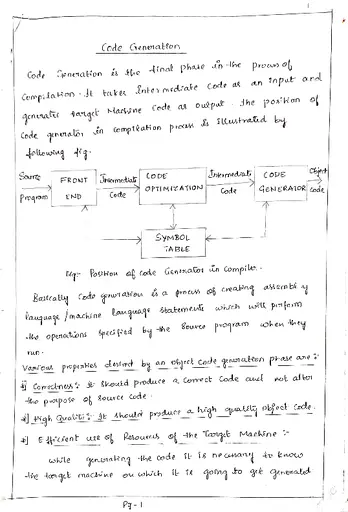 Code Generation
Code Generation is the final phase in the process of
Compilation. It takes Intermediate Code as an input and
generates target Machine Code as output. The position of
Code generator in compilation process is illustrated by
following fig.
Source Program
FRONT END
Intermediate Code
CODE OPTIMIZATION
Intermediate Code
CODE GENERATOR
Object Code
SYMBOL TABLE
Fig:- Position of Code Generator in Compiler.
Basically Code generation is a process of creating assembly
language / machine language statements which will perform
the operations specified by the source program when they
run.
Various properties desired by an object code generation phase are :-
Correctness :- It should produce a correct code and not alter
the purpose of source code.
High Quality :- It should produce a high quality object code.
Efficient use of Resources of the Target Machine :-
while generating the code it is necessary to know
the target machine on which it is going to get generated
Pg-1